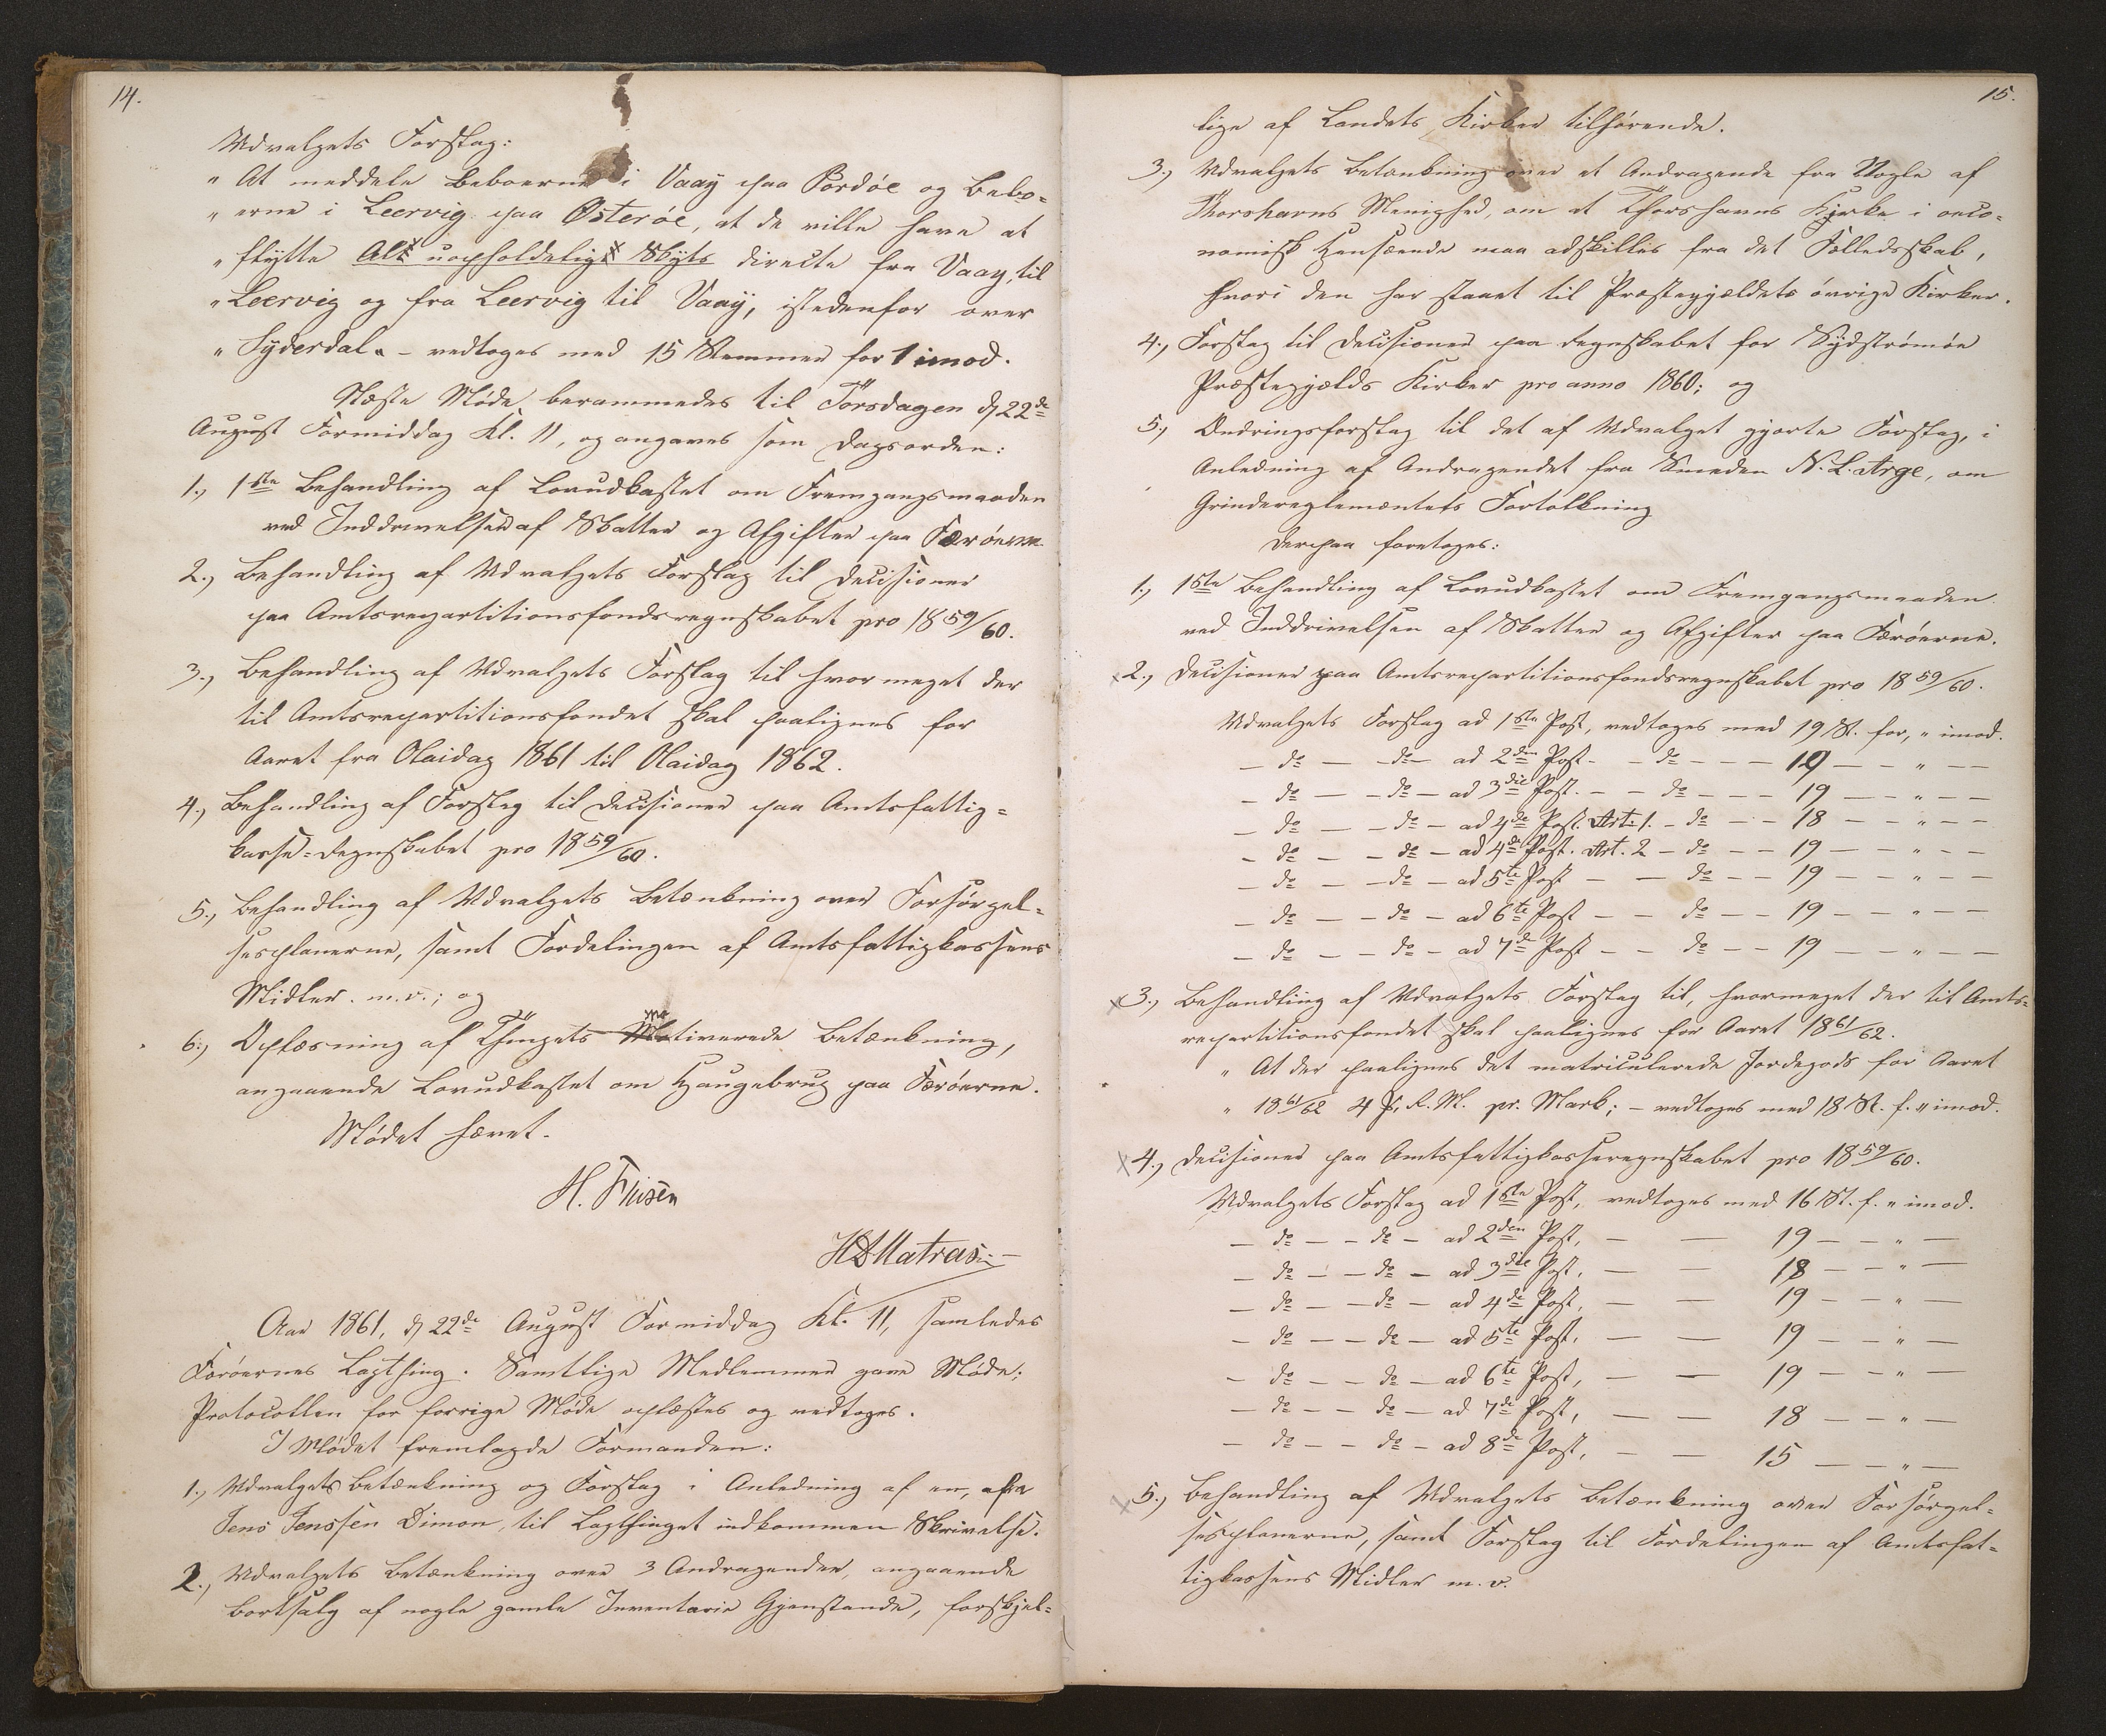 14.
Udvalgets Forslag:
" At meddele Beboerne i Vaay paa Bordøe og Bebo=
" erne i Leervig paa Østerøe, at de ville have at
" flytte Alt uopholdeligt Skyts directe fra Vaay, til
" Leervig og fra Leervig til Vaay, istedenfor over
" Syderdal. - vedtoges med 15 Stemmer for 1 imod.
Næste Møde berammedes til Torsdagen d. 22de
August Formiddag Kl. 11, og angaves som Dagsorden:
1., 1ste Behandling af Lovudkastet om Fremgangsmaaden
ved Inddrivelsen af Skatter og Afgifter paa Færøerne.
2., Behandling af Udvalgets Forslag til Decisioner
paa Amtsrepartitionsfondsregnskabet pro 1859/60.
3., Behandling af Udvalgets Forslag til hvor meget der
til Amtsrepartitionsfondet skal paalignes for
Aaret fra Olaidag 1861 til Olaidag 1862.
4., Behandling af Forslag til Decisioner paa Amtsfattig=
kasse=Regnskabet pro 1859/60.
5., Behandling af Udvalgets Betænkning over Forsørgel=
sesplanerne, samt Fordelingen af Amtsfattigkassens
Midler. m.v.; og
6., Oplæsning af Thingets Motiverede Betænkning,
angaaende Lovudkastet om Haugebrug paa Færøerne.
Mødet hævet.
H. Friisen
HDMatras.
Aar 1861, d. 22de August Formiddag Kl. 11, samledes
Færøernes Lagthing. Samtlige Medlemmer gave Møde;
Protocollen for forrige Møde oplæstes og vedtoges.
I Mødet fremlagde Formanden:
1., Udvalgets Betænkning og Forslag i Anledning af en, fra
Jens Jenssen Dimon, til Lagthinget indkommen Skrivelse.
2., Udvalgets Betænkning over 3 Andragender, angaaende
Bortsalg af nogle gamle Inventarie Gjenstande, forskjel=
15.
lige af Landets Kirker tilhørende.
3., Udvalgets Betænkning over et Andragende fra Nogle af
Thorshavns Menighed, om at Thorshavns Kirke i oeco=
nomisk Henseende maa adskilles fra det Fælledsskab,
hvori den har staaet til Præstegjældets øvrige Kirker.
4., Forslag til Decisioner paa Regnskabet for Sydstrømøe
Præstegjælds Kirker pro anno 1860; og
5., Ændringsforslag til det af Udvalget gjorte Forslag, i
Anledning af Andragendet fra Smeden N. L. Arge, om
Grindereglementets Fortolkning
Derpaa foretoges:
1., 1ste Behandling af Lovudkastet om Fremgangsmaaden
ved Inddrivelsen af Skatter og Afgifter paa Færøerne.
2., Decisioner paa Amtsrepartitionsfondsregnskabet pro 1859/60.
Udvalgets Forslag ad 1ste Post, vedtoges med 19 St. for, " imod.
- do - - do - ad 2den Post - - do - - - 19 - - " - -
- do - - do - ad 3die Post. - - do - - - 19 - - " - -
- do - - do - ad 4de Post. Art. 1. - do - - 18 - - " - -
- do - - do - ad 4de Post. Art. 2 - do - - 19 - - " - -
- do - - do - ad 5te Post - - do - - 19 - - " - -
- do - - do - ad 6te Post - - do - - 19 - - " - -
- do - - do - ad 7de Post - - do - - 19 - - " - -
3., Behandling af Udvalgets Forslag til, hvormeget der til Amts=
repartitionsfondet skal paalignes for Aaret 1861/62.
" At der paalignes det matriculerede Jordegods for Aaret
" 1861/62 4 ß, R.M. pr. Mark; - vedtoges med 18 St. f. " imod.
4., Decisioner paa Amtsfattigkasseregnskabet pro 1859/60.
Udvalgets Forslag ad 1ste Post, vedtoges med 16 St. f. " imod.
- do - - do - ad 2den Post, - - 19 - - " -
- do - - do - ad 3die Post, - - 18 - - " -
- do - - do - ad 4de Post, - - 19 - - " -
- do - - do - ad 5te Post, - - 19 - - " -
- do - - do - ad 6te Post, - - 19 - - " -
- do - - do - ad 7de Post, - - 18 - - " -
- do - - do - ad 8de Post, - - 15 - - " -
5., Behandling af Udvalgets Betænkning over Forsørgel=
sesplanerne, samt Forslag til Fordelingen af Amtsfat=
tigkassens Midler m.v.